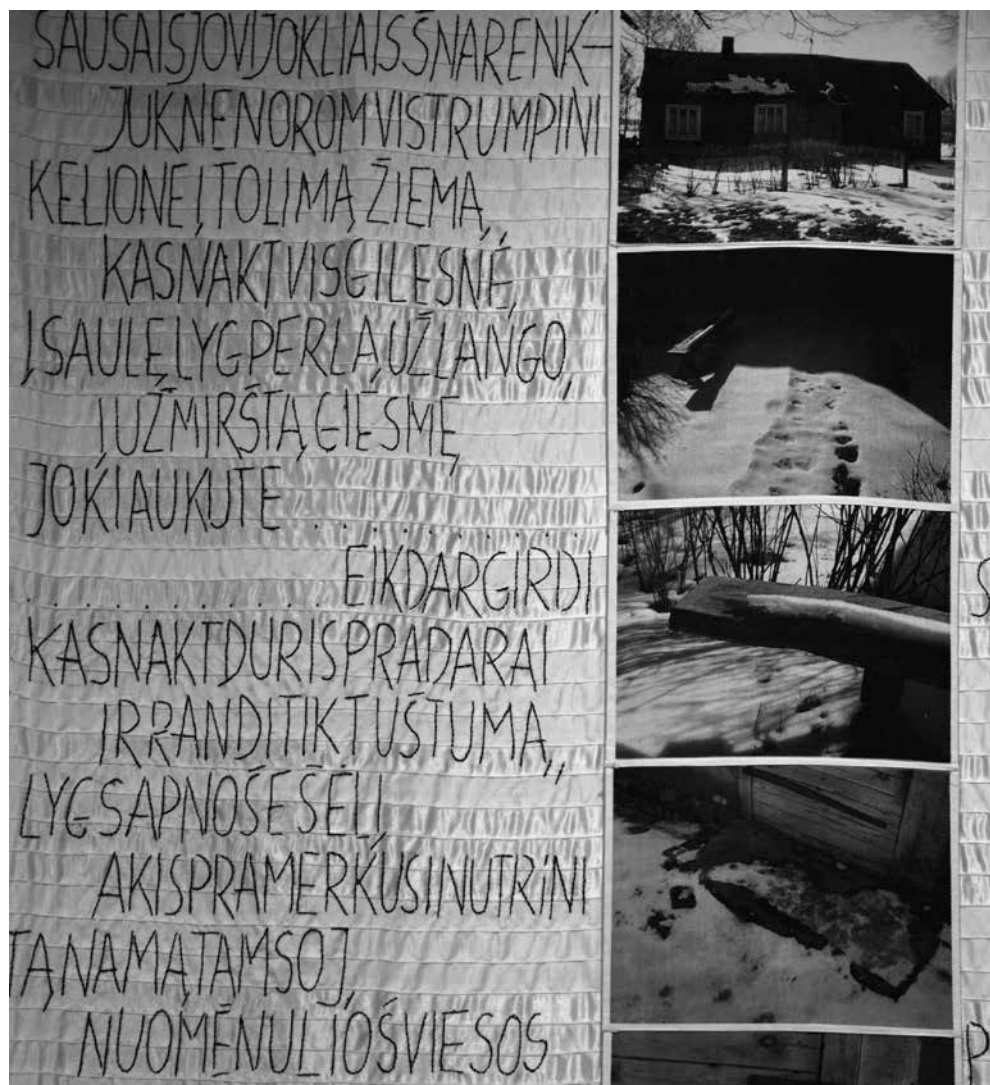 SAUSAISJOVIJOKLIAISŠNARENK–
JUKNENOROMVISTRUMPINI
KELIONĘĮTOLIMĄŽIEMĄ,
KASNAKTVISGILESNĘ,
ĮSAULĘLYGPERLĄUŽLANGO,
ĮUŽMIRŠTĄGIESMĘ
JOKIAUKUTE . . . . . . . .
. . . . . . . . . . EIKDARGIRDI
KASNAKTDURISPRADARAI
IRRANDITIKTUŠTUMĄ,
LYGSAPNOŠEŠĖLĮ,
AKISPRAMERKUSINUTRINI
TĄNAMĄTAMSOJ,
NUOMĖNULIOŠVIESOS
S
P